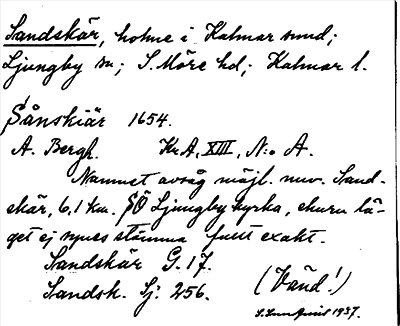 Sandskär, holme i Kalmar sund;
Ljungby sn; S. Möre hd; Kalmar l.
Sånskiär 1654.
A. Bergh. Kr. A, XIII, N:o A.
Namnet avsåg möjl. nuv. Sand-
skär, 6,1 km. SÖ Ljungby kyrka, ehuru lä-
get ej synes stämma fullt exakt.
Sandskär G. 17.
Sandsk. Sj. 256. (Vänd!)
1937.